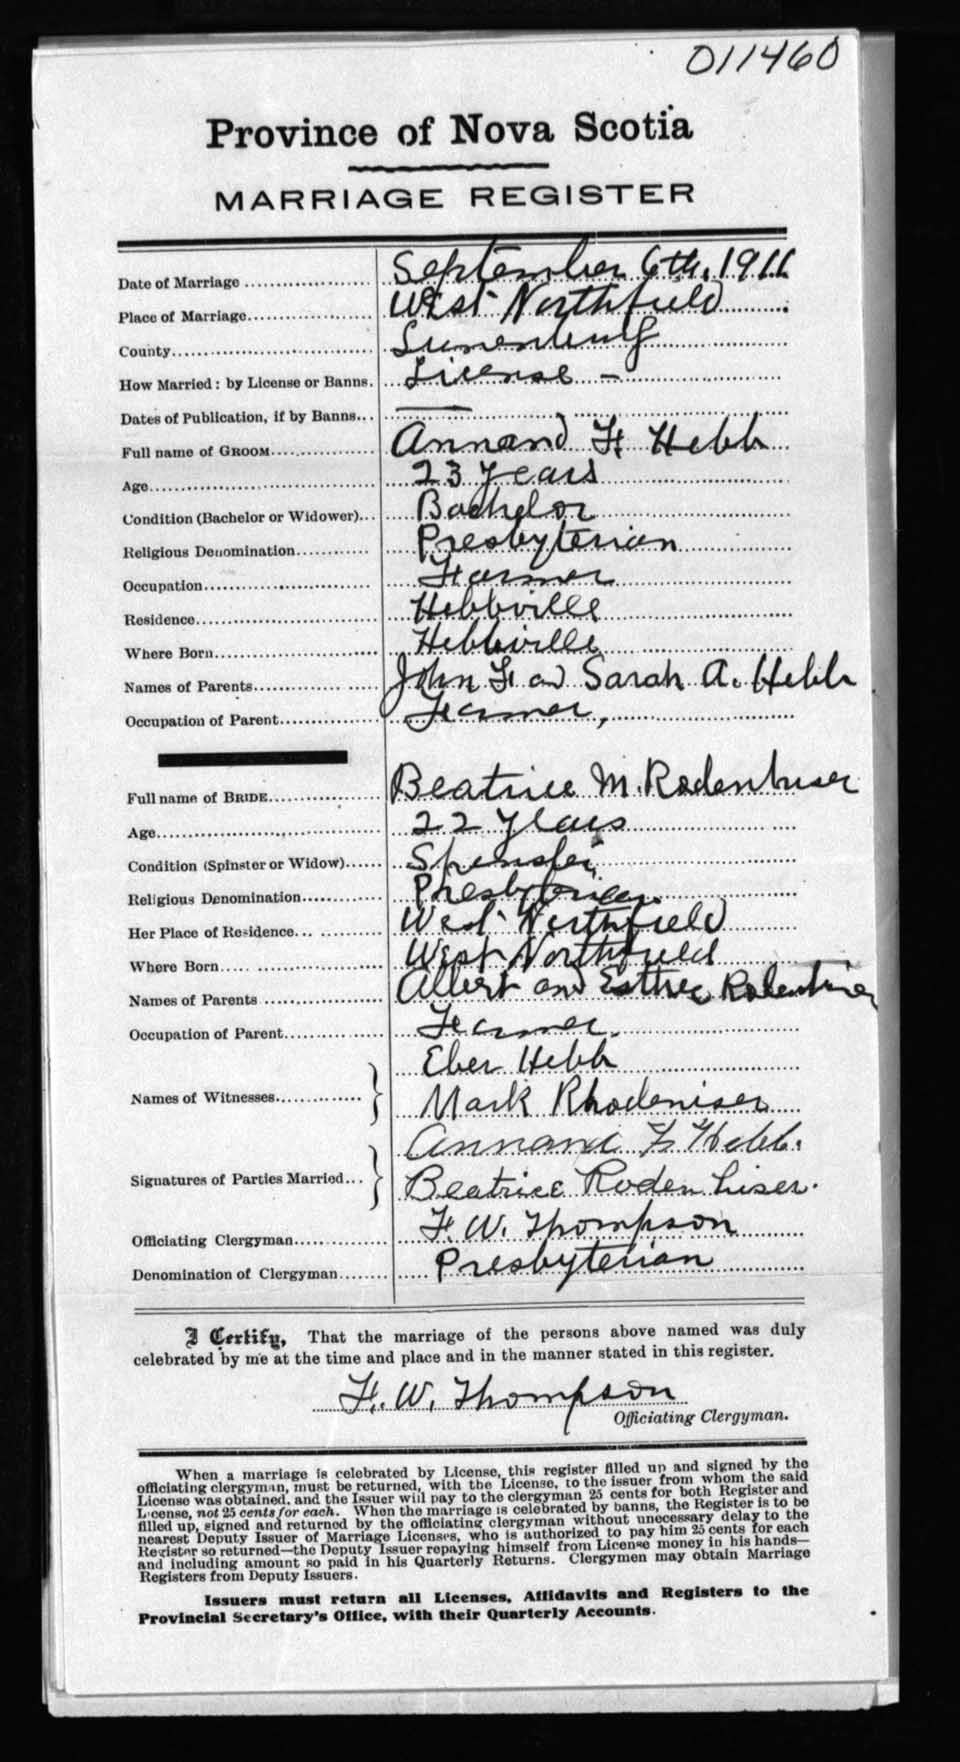 011460
Province of Nova Scotia
MARRIAGE REGISTER
Date of Marriage September 6th, 1911
Place of Marriage West Northfield
County Lunenburg
How Married: by License or Banns. License –
Dates of Publication, if by Banns... —
Full name of GROOM Annand F. Hebb
Age 23 years
Condition (Bachelor or Widower)... Bachelor
Religious Denomination Presbyterian
Occupation Farmer
Residence Hebbville
Where Born Hebbville
Names of Parents John F and Sarah A. Hebb
Occupation of Parent Farmer,
Full name of BRIDE Beatrice M. Rodenhiser
Age 22 years
Condition (Spinster or Widow) Spinster
Religious Denomination Presbyterian
Her Place of Residence... West Northfield
Where Born West Northfield
Names of Parents Albert and Esther Rodenhiser
Occupation of Parent Farmer.
Eber Hebb
Names of Witnesses Mark Rhodeniser
Annand F. Hebb.
Signatures of Parties Married... Beatrice Rodenhiser.
Officiating Clergyman F. W. Thompson
Denomination of Clergyman Presbyterian
I Certify, That the marriage of the persons above named was duly
celebrated by me at the time and place and in the manner stated in this register.
F. W. Thompson
Officiating Clergyman.
When a marriage is celebrated by License, this register filled up and signed by the
officiating clergyman, must be returned, with the License, to the issuer from whom the said
License was obtained, and the Issuer will pay to the clergyman 25 cents for both Register and
License, not 25 cents for each. When the marriage is celebrated by banns, the Register is to be
filled up, signed and returned by the officiating clergyman without unnecessary delay to the
nearest Deputy Issuer of Marriage Licenses, who is authorized to pay him 25 cents for each
Register so returned—the Deputy Issuer repaying himself from License money in his hands—
and including amount so paid in his Quarterly Returns. Clergymen may obtain Marriage
Registers from Deputy Issuers.
Issuers must return all Licenses, Affidavits and Registers to the
Provincial Secretary's Office, with their Quarterly Accounts.